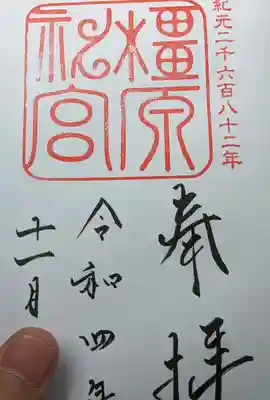 紀元二千六百八十二年
橿原
神宮
奉拝
令和四年
十一月